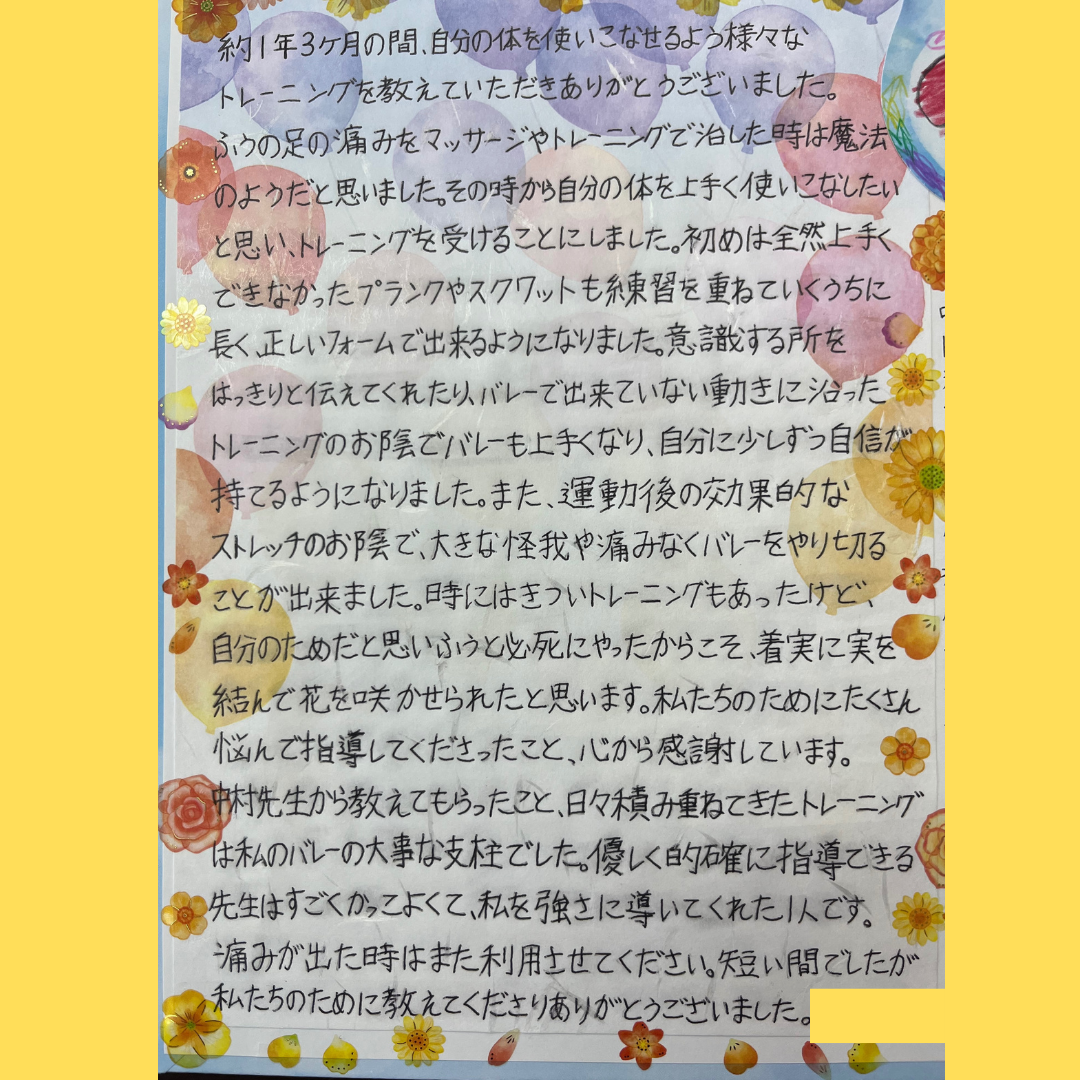 約1年3ケ月の間、自分の体を使いこなせるよう様々な
トレーニングを教えていただきありがとうございました。
ふうの足の痛みをマッサージやトレーニングで治した時は魔法
のようだと思いました。その時から自分の体を上手く使いこなしたい
と思い、トレーニングを受けることにしました。初めは全然上手く
できなかったプランクやスクワットも練習を重ねていくうちに
長く、正しいフォームで出来るようになりました。意識する所を
はっきりと伝えてくれたり、バレーで出来ていない動きに沿った
トレーニングのお陰でバレーも上手くなり、自分に少しずつ自信が
持てるようになりました。また、運動後の効果的な
ストレッチのお陰で、大きな怪我や痛みなくバレーをやり切る
ことが出来ました。時にはきついトレーニングもあったけど、
自分のためだと思いふうと必死にやったからこそ、着実に実を
結んで花を咲かせられたと思います。私たちのためにたくさん
悩んで指導してくださったこと、心から感謝しています。
中村先生から教えてもらったこと、日々積み重ねてきたトレーニング
は私のバレーの大事な支柱でした。優しく的確に指導できる
先生はすごくかっこよくて、私を強さに導いてくれた1人です。
痛みが出た時はまた利用させてください。短い間でしたが
私たちのために教えてくださりありがとうございました。